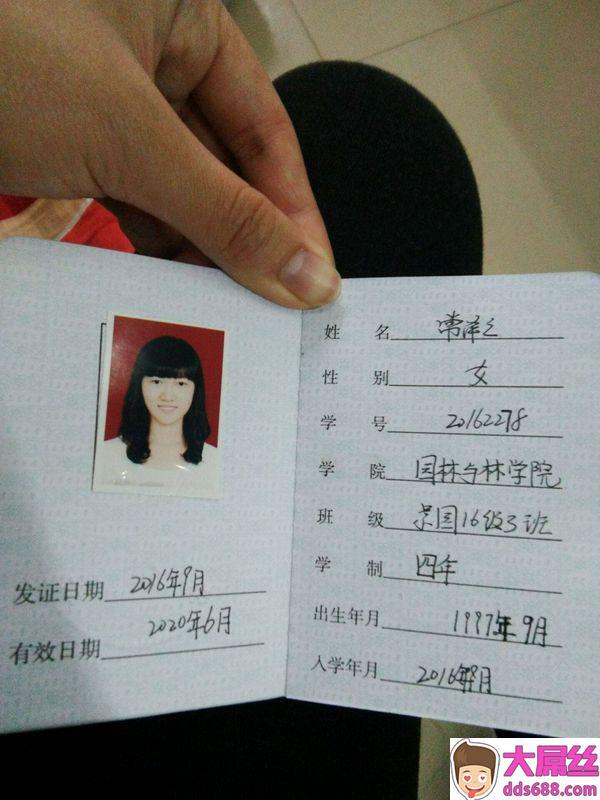 姓 名
性 别 女
学 号 20162278
学 院 园林与林学院
班 级 景园16级3班
学 制 四年
出生年月 1997年9月
入学年月 2016年9月
发证日期 2016年9月
有效日期 2020年6月
大屌丝
dds688.com